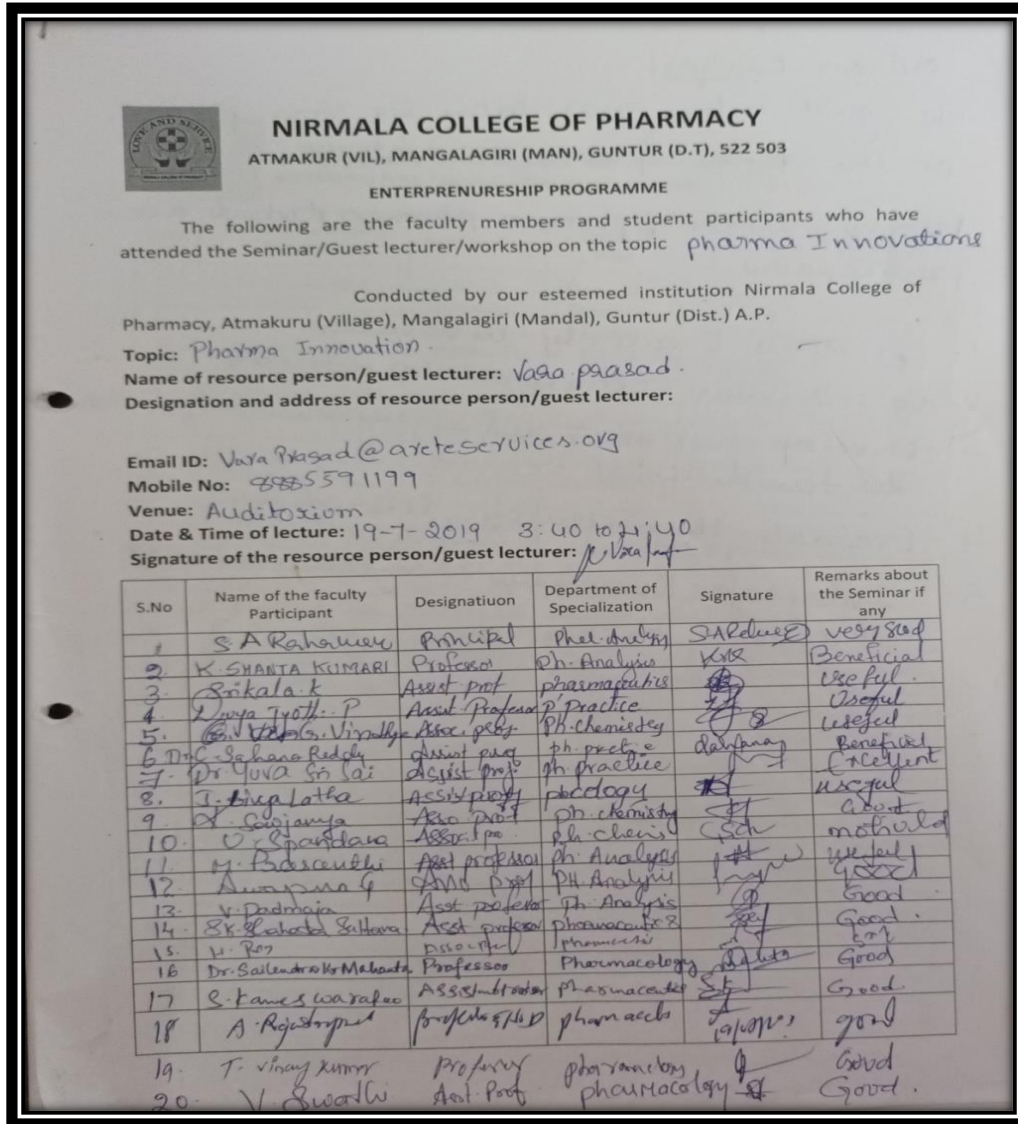 LOVE AND SERVICE
NIRMALA COLLEGE OF PHARMACY
ATMAKUR (VIL), MANGALAGIRI (MAN), GUNTUR (D.T), 522 503
ENTERPRENURESHIP PROGRAMME
The following are the faculty members and student participants who have
attended the Seminar/Guest lecturer/workshop on the topic pharma Innovations
Conducted by our esteemed institution Nirmala College of
Pharmacy, Atmakuru (Village), Mangalagiri (Mandal), Guntur (Dist.) A.P.
Topic: Pharma Innovation.
Name of resource person/guest lecturer: Vara prasad.
Designation and address of resource person/guest lecturer:
Email ID: Vara Prasad@areteservices.org
Mobile No: 8885591199
Venue: Auditorium
Date & Time of lecture: 19-7-2019 3:40 to 4:40
Signature of the resource person/guest lecturer:
S.No Name of the faculty Participant Designatiuon Department of Specialization Signature Remarks about the Seminar if any
1 S A Rahaman Principal Phal. Analysis very good
2. K. SHANTA KUMARI Professor Ph. Analysis Beneficial
3. Srikala.k Assist prof pharmaceutics Useful.
4. Divya Jyothi. P Assist Professor P' Practice Useful
5. Assoc. prof Ph. chemistry useful
6 Dr. C. Sahana Reddy Assist prof ph. practice Beneficial
7. Dr. Yuva Sri Sai Assist prof. ph. practice Excellent
8. Assist prof phcology useful
9 Sowjanya Asso prof ph. chemistry Good
10. U. Spandana Assoc. pro ph. chemis
11. M. Asst professor Ph. Analysis useful
12 prof PH. Analysis good
13. V. Padmaja Asst professor Ph. Analysis Good
14. SK. Asst professor pharmaceutics Good.
15.
16 Dr. Sailendra Kr Mahanta Professor Pharmacology Good
17 S. Kameswararao pharmaceutics Good.
18 A. good
19. T. Vinay Kumar Good
20. V. Swathi Asst. Prof pharmacology Good.